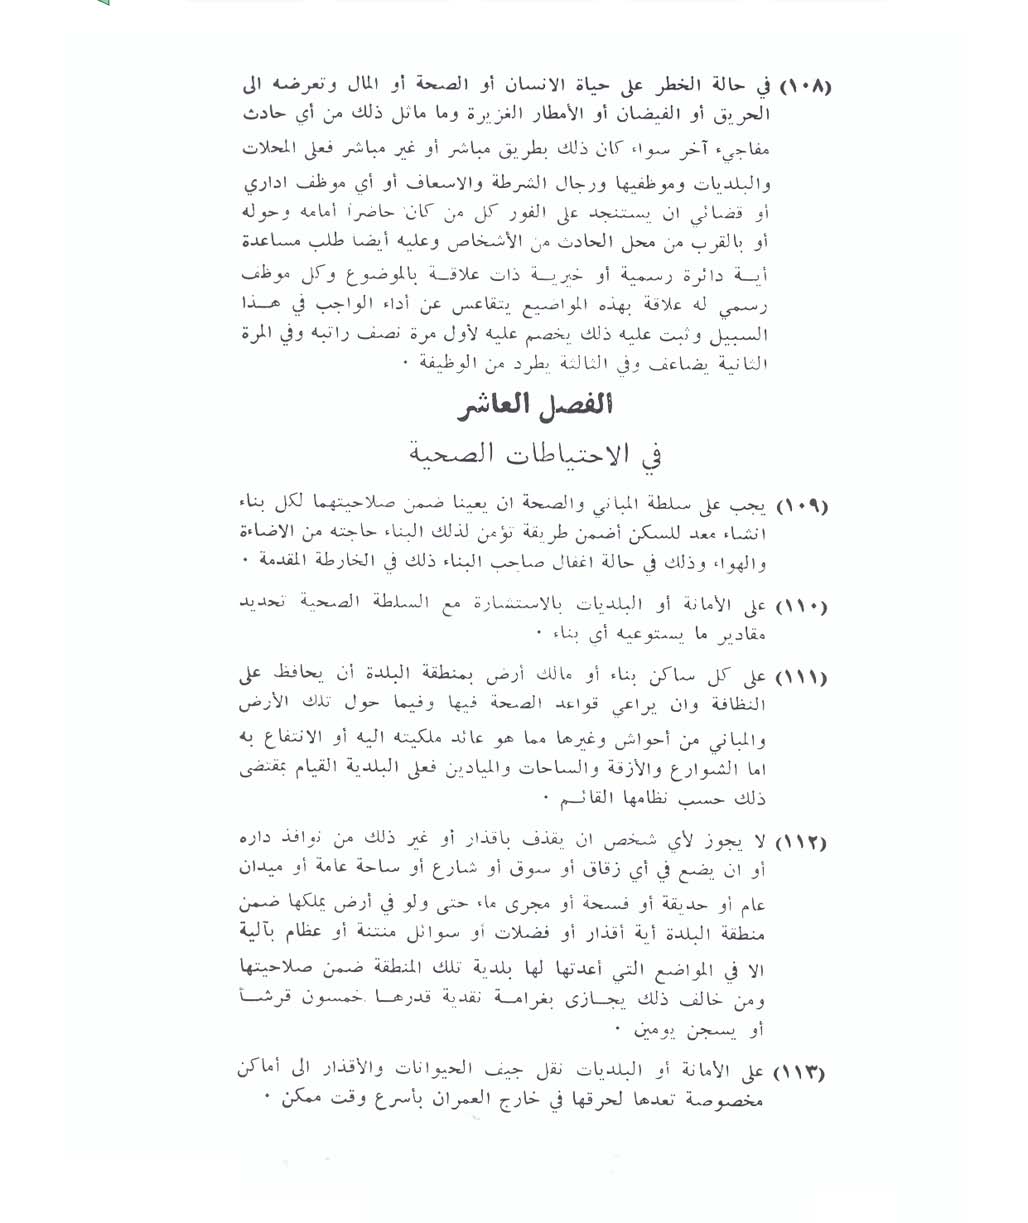 (١٠٨) في حالة الخطر على حياة الانسان أو الصحة أو المال وتعرضه الى
الحريق أو الفيضان أو الأمطار الغزيرة وما ماثل ذلك من أي حادث
مفاجيء آخر سواء كان ذلك بطريق مباشر أو غير مباشر فعلى المحلات
والبلديات وموظفيها ورجال الشرطة والاسعاف أو أي موظف اداري
أو قضائي ان يستنجد على الفور كل من كان حاضرا أمامه وحوله
أو بالقرب من محل الحادث من الأشخاص وعليه أيضا طلب مساعدة
أيـة دائرة رسمية أو خيريـة ذات علاقـة بالموضوع وكل موظف
رسمي له علاقة بهذه المواضيع يتقاعس عن أداء الواجب في هـذا
السبيل وثبت عليه ذلك يخصم عليه لأول مرة نصف راتبه وفي المرة
الثانية يضاعف وفي الثالثة يطرد من الوظيفة ٠
الفصل العاشر
في الاحتياطات الصحية
(١٠٩) يجب على سلطة المباني والصحة ان يعينا ضمن صلاحيتهما لكل بناء
انشاء معد للسكن أضمن طريقة تؤمن لذلك البناء حاجته من الاضاءة
والهواء وذلك في حالة اغفال صاحب البناء ذلك في الخارطة المقدمة ٠
(١١٠) على الأمانة أو البلديات بالاستشارة مع السلطة الصحية تحديد
مقادير ما يستوعبه أي بناء ٠
(١١١) على كل ساكن بناء أو مالك أرض بمنطقة البلدة أن يحافظ على
النظافة وان يراعي قواعد الصحة فيها وفيما حول تلك الأرض
والمباني من أحواش وغيرها مما هو عائد ملكيته اليه أو الانتفاع به
اما الشوارع والأزقة والساحات والميادين فعلى البلدية القيام بمقتضى
ذلك حسب نظامها القائـم ٠
(١١٢) لا يجوز لأي شخص ان يقذف باقذار أو غير ذلك من نوافذ داره
أو ان يضع في أي زقاق أو سوق أو شارع أو ساحة عامة أو ميدان
عام أو حديقة أو فسحة أو مجرى ماء حتى ولو في أرض يملكها ضمن
منطقة البلدة أية أقذار أو فضلات او سوائل منتنة أو عظام بآلية
الا في المواضع التي أعدتها لها بلدية تلك المنطقة ضمن صلاحيتها
ومن خالف ذلك يجـازى بغرامة نقدية قدرهـا خمسون قرشـاً
أو يسجن يومين ٠
(١١٣) على الأمانة أو البلديات نقل جيف الحيوانات والأقذار الى أماكن
مخصوصة تعدها لحرقها في خارج العمران بأسرع وقت ممكن ٠